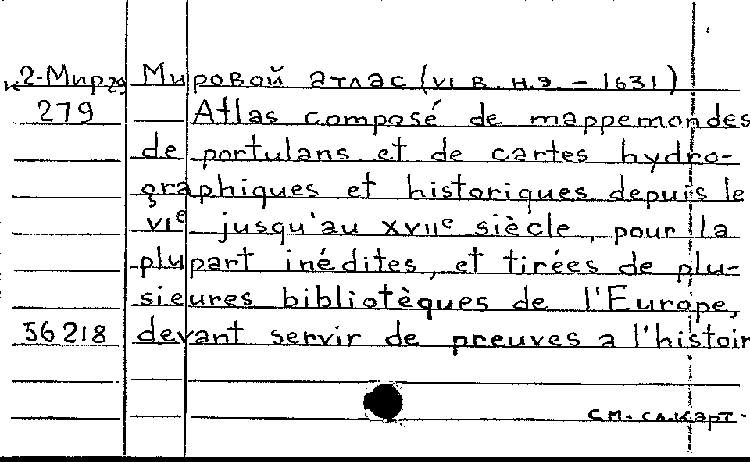 к2-Мир29 Мировой атлас (VI в. н.э. - 1631)
279 Atlas composé de mappemondes
de portulans et de cartes hydro-
graphiques et historiques depuis le
VIe jusqu'au XVIIe siècle, pour la
plupart inédites, et tirées de plu-
sieures bibliotèques de l'Europe,
36218 devant servir de preuves a l'histoir
см. сл. карт.